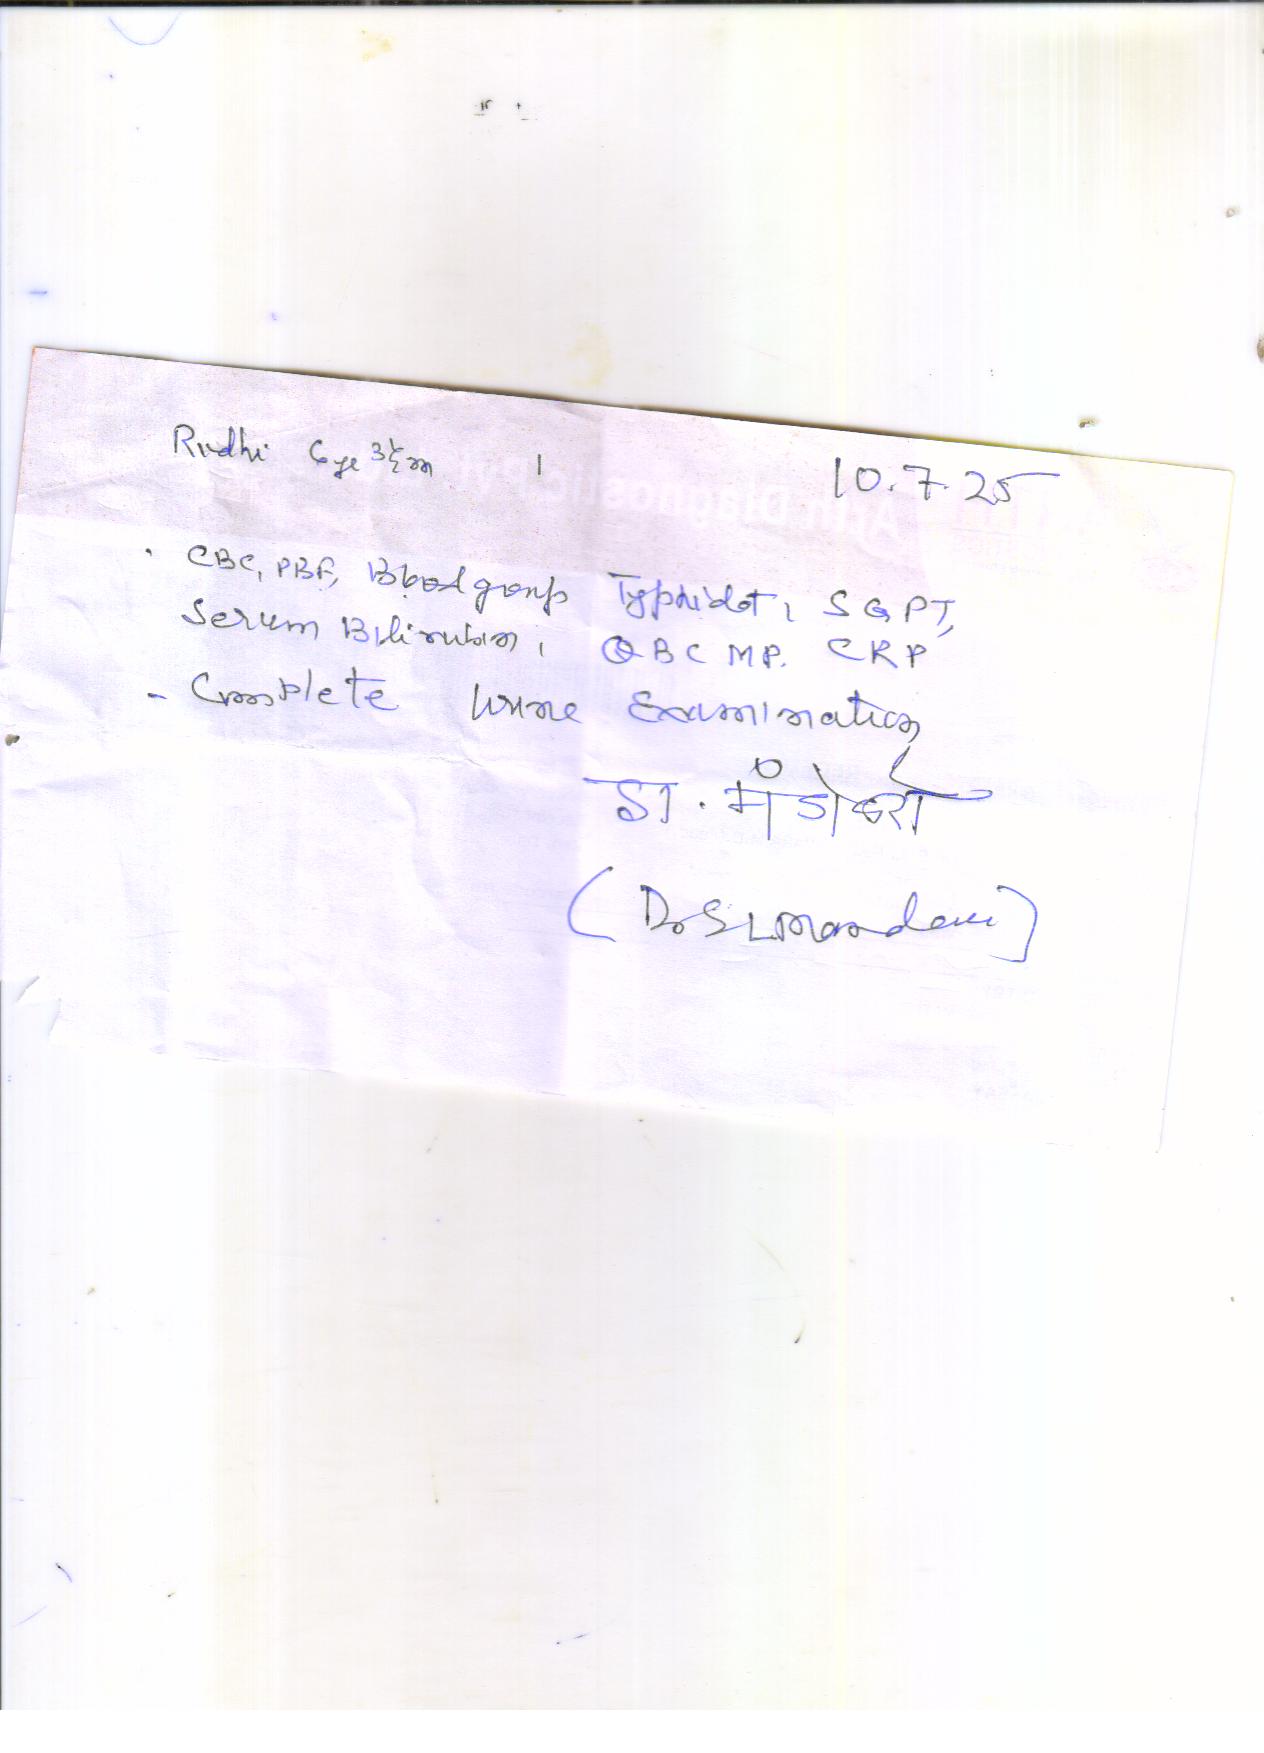 Rudhi 6 yr 3½ m 10.7.25
CBC, PBF, Blood group Typhidot, SGPT,
Serum Bilirubin, QBC MP. CRP
- Complete Urine Examination
डा. मंडोवरा
(Dr S L Mandowara)